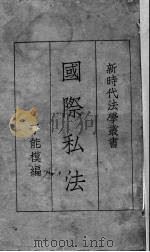 新時代法學叢書
國際私法
能模編
www.mtoou.info